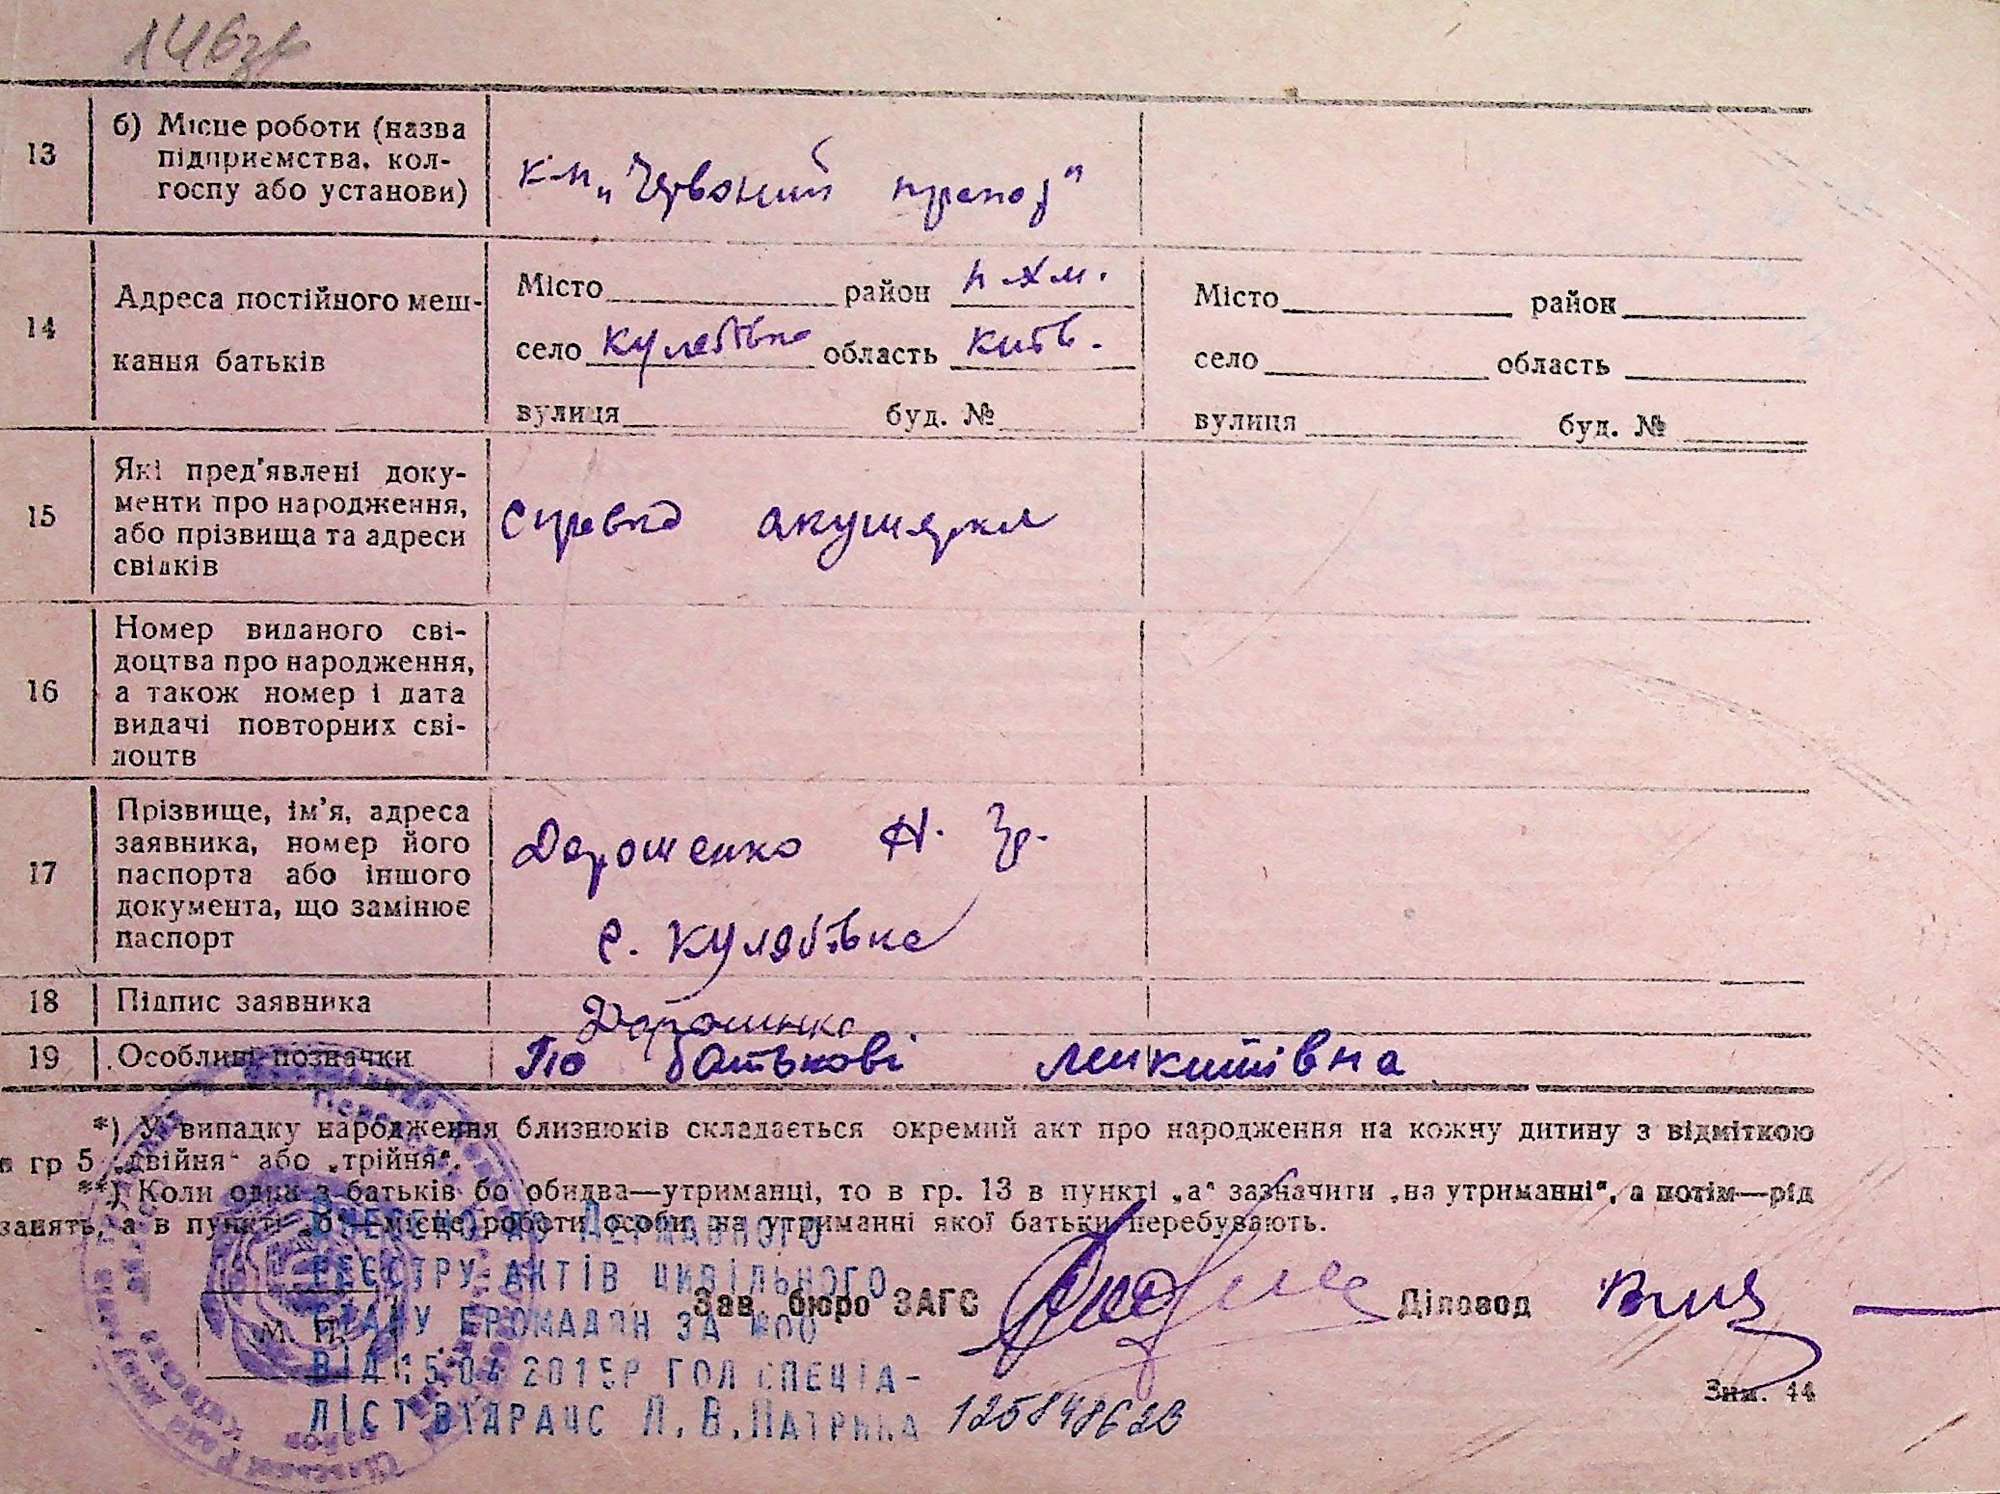 13 б) Місце роботи (назва
підприємства, кол-
госпу або установи)
к-п „Червоний прапор"
14 Адреса постійного меш-
кання батьків
Місто район п-хм.
село Кулябівка область Київ.
вулиця буд. №
Місто район
село область
вулиця буд. №
15 Які пред'явлені доку-
менти про народження,
або прізвища та адреси
свідків
Справка акушерки
16 Номер виданого сві-
доцтва про народження,
а також номер і дата
видачі повторних сві-
доцтв
17 Прізвище, ім'я, адреса
заявника, номер його
паспорта або іншого
документа, що замінює
паспорт
Дорошенко Н. Гр.
с. Кулябівка
18 Підпис заявника
Дорошенко
19 Особливі позначки
По батькові Микитівна
*) У випадку народження близнюків складається окремий акт про народження на кожну дитину з відміткою
в гр 5 „двійня" або „трійня".
**) Коли один з батьків бо обидва—утриманці, то в гр. 13 в пункті „а" зазначити „на утриманні", а потім—рід
занять, а в пункті „б"—місце роботи особи, на утриманні якої батьки перебувають.
Внесено до Державного
реєстру актів цивільного
стану громадян за №00
від 15 04 2015р гол спеціа-
ліст ВДРАЦС Л. В. Патрика 125848623
М. П.
Зав. бюро ЗАГС Діловод
Зим. 44